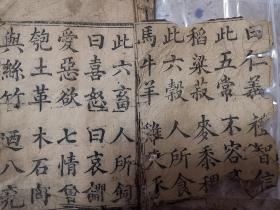 曰仁義 禮智信
此五常 不容
稻粱菽 麥黍稷
此六穀 人所食
馬牛羊 雞犬豕
此六畜 人所飼
曰喜怒 曰哀懼
愛惡欲 七情
匏土革 木石
與絲竹 迺八